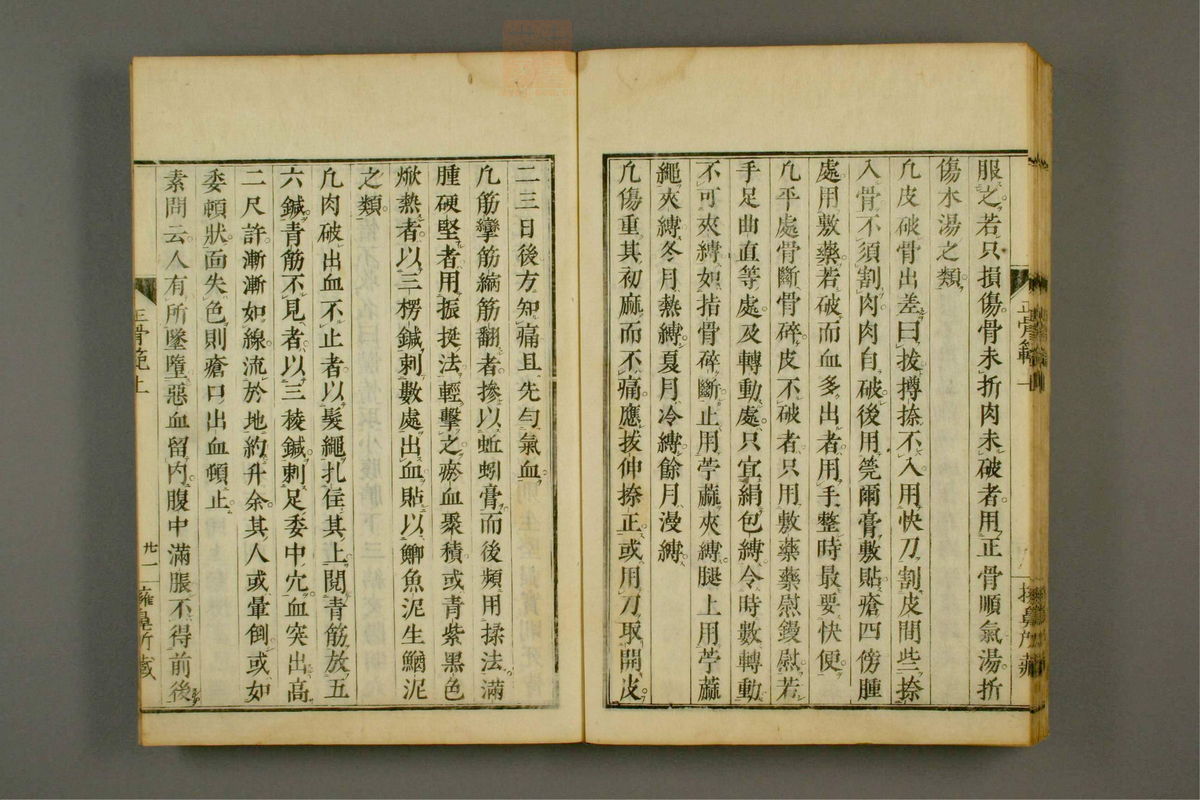 服之若只損傷骨未折肉未破者用正骨順氣湯折
傷木湯之類
凢皮破骨出差曰拔撙捺不入用快刀割皮間些捺
入骨不須割肉肉自破後用筦爾膏敷貼瘡四傍腫
處用敷藥若破而血多出者用手整時最要快便
凢平處骨斷骨碎皮不破者只用敷藥藥慰鏝慰若
手足曲直等處及轉動處只宜絹包縛令時數轉動
不可夾縛如拮骨碎斷止用苧蔴夾縛腿上用苧蔴
繩夾縛冬月熱縛夏月冷縛餘月漫縛
凢傷重其初麻而不痛應拔伸捺正或用刀取開皮
正骨範上
二三日後方知痛且先勻氣血
凢筋攣筋縮筋翻者摻以蚯蚓膏而後頻用揉法滿
腫硬堅者用振挺法輕擊之瘀血聚積或青紫黑色
焮熱者以三楞鍼刺數處出血貼以鯽魚泥生鰌泥
之類
凢肉破出血不止者以髮繩扎住其上閱青筋放五
六鍼青筋不見者以三稜鍼刺足委中穴血突出高
二尺許漸漸如線流於地約升余其人或暈倒或如
委頓狀面失色則瘡口出血頓止
素問云人有所墜墮惡血留內腹中滿脹不得前後
正骨範上
廿一
擁鼻所藏